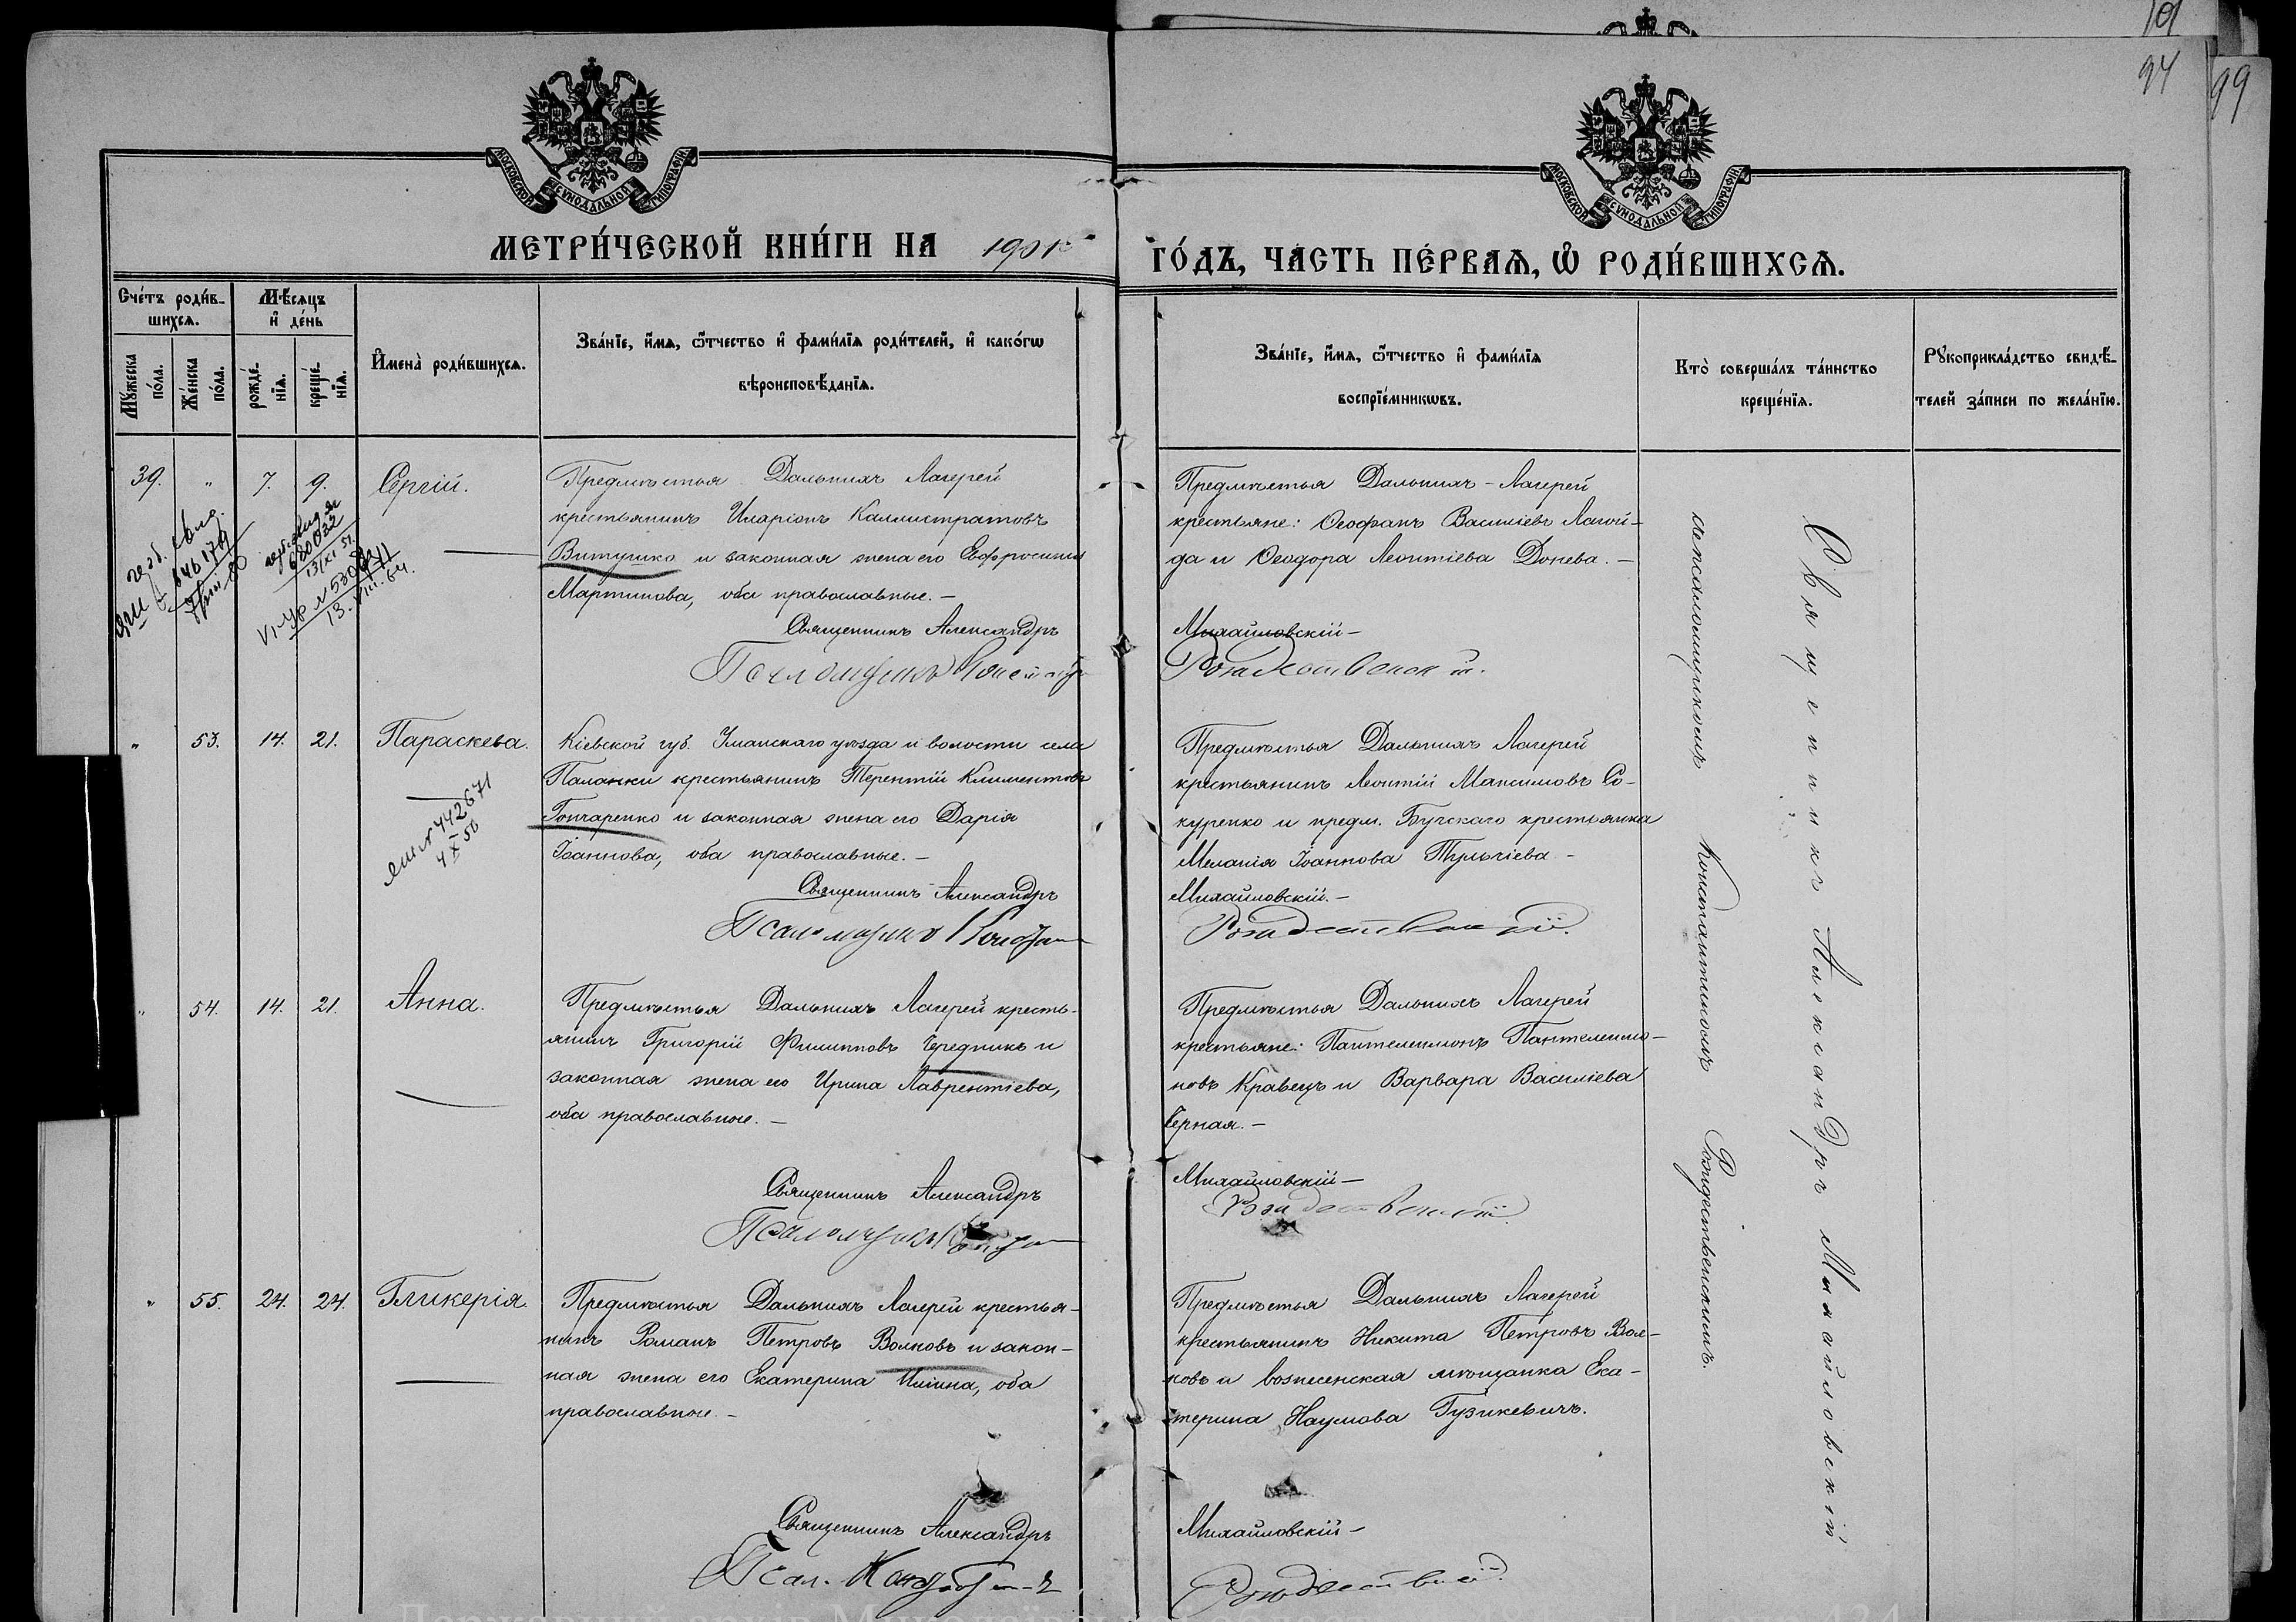 101
94
99
МОСКОВСКОЙ СУНОДАЛЬНОЙ ТИПОГРАФІИ
МОСКОВСКОЙ СУНОДАЛЬНОЙ ТИПОГРАФІИ
МЕТРИ́ЧЕСКОЙ КНИ́ГИ НА 1901
ГО́ДЪ, ЧАСТЬ ПЕ́РВАѦ, Ѡ҆ РОДИ́ВШИХСѦ.
Сче́тъ роди́в-
шихсѧ.
Мѣ́сѧцъ
и҆ де́нь
Мꙋ́жеска
по́ла.
Же́нска
по́ла.
рожде́-
нїѧ.
креще́-
нїѧ.
И҆мена̀ роди́вшихсѧ.
Зва́нїе, и҆́мѧ, ѻ҆́тчество и҆ фами́лїѧ роди́телей, и҆ како́гѡ
вѣроисповѣ́данїѧ.
Зва́нїе, и҆́мѧ, ѻ҆́тчество и҆ фами́лїѧ
воспрїе́мникѡвъ.
Кто̀ соверша́лъ та́инство
креще́нїѧ.
Рꙋкоприкла́дство свидѣ́-
телей за́писи по жела́нїю.
39. " 7. 9. Сергій.
Предмѣстья Дальнихъ Лагерей
крестьянинъ Иларіонъ Каллистратовъ
Витушко и законная жена его Евфросинія
Мартинова, оба православные. –
Священникъ Александръ
Предмѣстья Дальнихъ - Лагерей
крестьяне: Ѳеофанъ Василіевъ Лагой-
да и Ѳеодора Леонтіева Донева. –
Михайловскій –
Рождественскій.
646179
680022
13/XI 51.
13.VIII.64.
" 53. 14. 21. Параскева.
442671
4 X 50
Кіевской губ. Уманскаго уѣзда и волости села
Паланки крестьянинъ Терентій Климентовъ
Гончаренко и законная жена его Дарія
Іоаннова, оба православные. –
Священникъ Александръ
Предмѣстья Дальнихъ Лагерей
крестьянинъ Леонтій Максимовъ Со-
куренко и предм. Бугскаго крестьянка
Меланія Іоаннова Тульчіева –
Михайловскій. –
Рождественскій.
" 54. 14. 21. Анна.
Предмѣстья Дальнихъ Лагерей кресть-
янинъ Григорій Филипповъ Чередникъ и
законная жена его Ирина Лаврентіева,
оба православные. –
Священникъ Александръ
Предмѣстья Дальнихъ Лагерей
крестьяне: Пантелеимонъ Пантелеимо-
новъ Кравецъ и Варвара Василіева
Черная. –
Михайловскій –
Рождественскій.
" 55. 24. 24. Гликерія.
Предмѣстья Дальнихъ Лагерей крестья-
нинъ Романъ Петровъ Волковъ и закон-
ная жена его Екатерина Иліина, оба
православные. –
Священникъ Александръ
Предмѣстья Дальнихъ Лагерей
крестьянинъ Никита Петровъ Вол-
ковъ и вознесенская мѣщанка Ека-
терина Наумова Гузикевичъ.
Михайловскій –
Священникъ Александръ Михайловскій
съ псаломщикомъ Константиномъ Рождественскимъ.